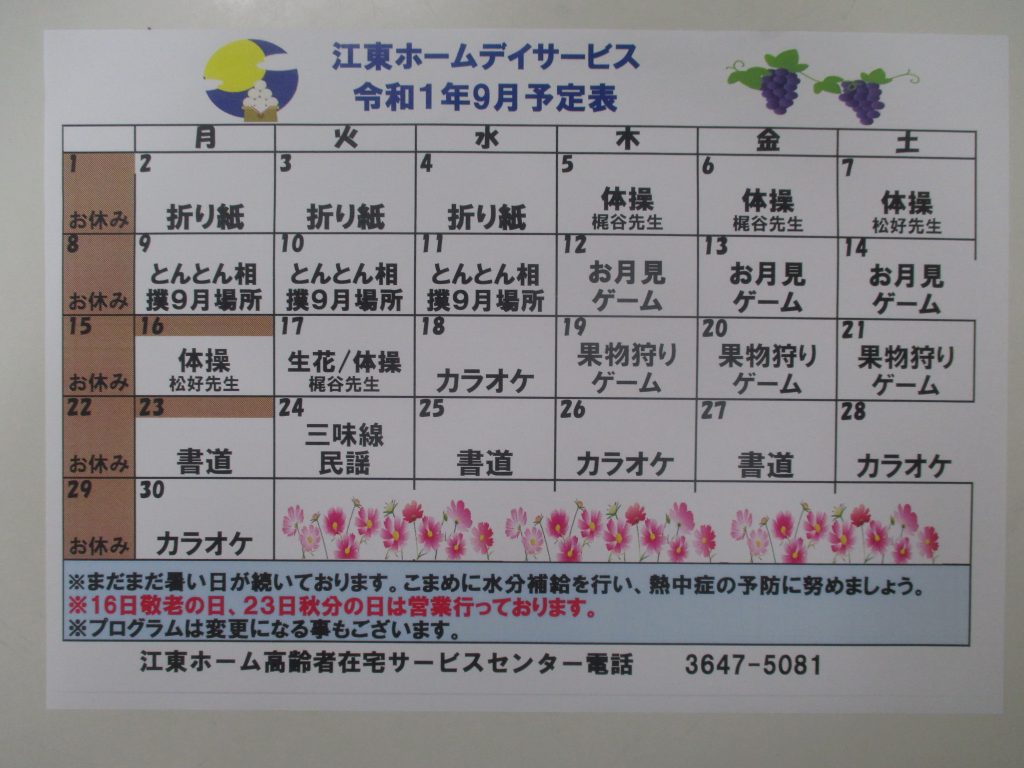 江東ホームデイサービス
令和1年9月予定表
月 火 水 木 金 土
1 2 3 4 5 6 7
お休み 折り紙 折り紙 折り紙 体操 体操 体操
梶谷先生 梶谷先生 松好先生
8 9 10 11 12 13 14
お休み とんとん相 とんとん相 とんとん相 お月見 お月見 お月見
撲9月場所 撲9月場所 撲9月場所 ゲーム ゲーム ゲーム
15 16 17 18 19 20 21
お休み 体操 生花/体操 カラオケ 果物狩り 果物狩り 果物狩り
松好先生 梶谷先生 ゲーム ゲーム ゲーム
22 23 24 25 26 27 28
お休み 書道 三味線 書道 カラオケ 書道 カラオケ
民謡
29 30
お休み カラオケ
※まだまだ暑い日が続いております。こまめに水分補給を行い、熱中症の予防に努めましょう。
※16日敬老の日、23日秋分の日は営業行っております。
※プログラムは変更になる事もございます。
江東ホーム高齢者在宅サービスセンター電話 3647-5081